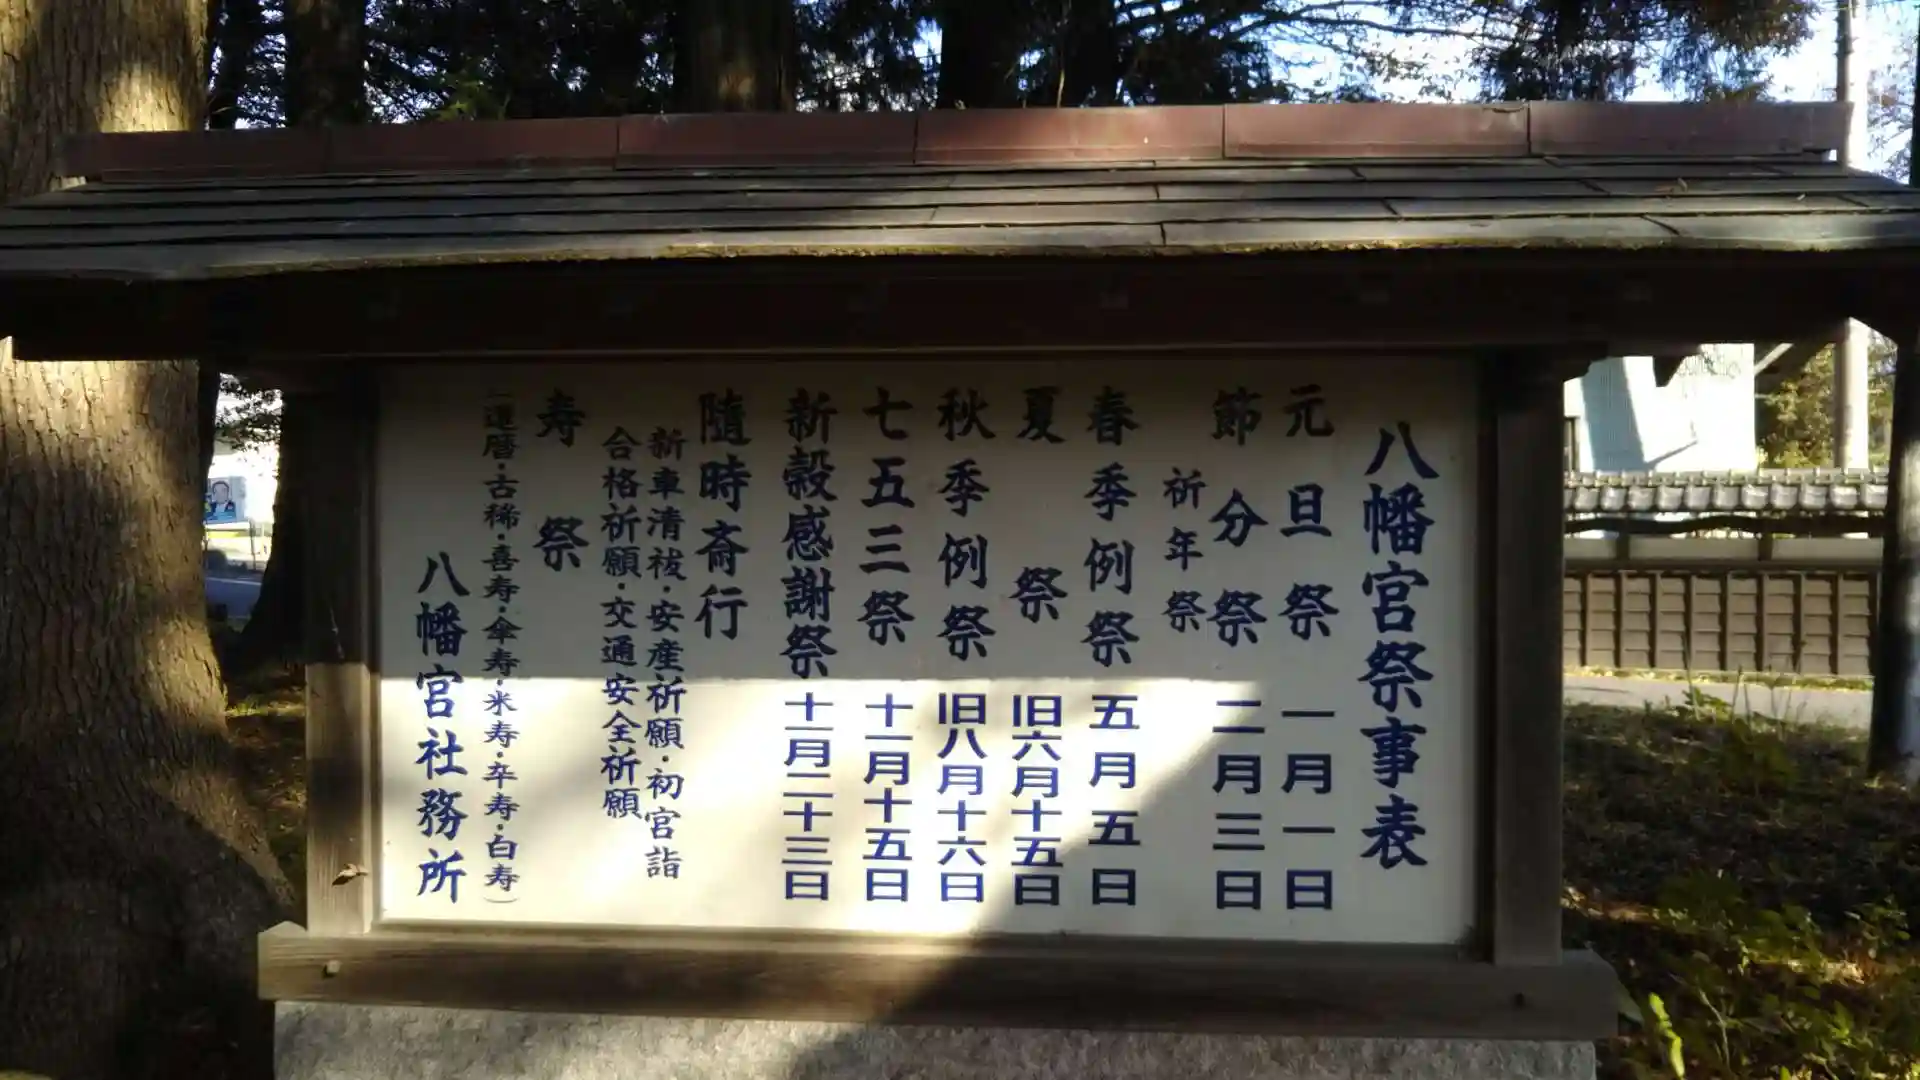 八幡宮祭事表
元旦祭 一月一日
節分祭 二月三日
祈年祭
春季例祭 五月五日
夏祭 旧六月十五日
秋季例祭 旧八月十六日
七五三祭 十一月十五日
新穀感謝祭 十一月二十三日
隨時斎行
新車清祓・安産祈願・初宮詣
合格祈願・交通安全祈願
寿祭
(還暦・古稀・喜寿・傘寿・米寿・卒寿・白寿)
八幡宮社務所